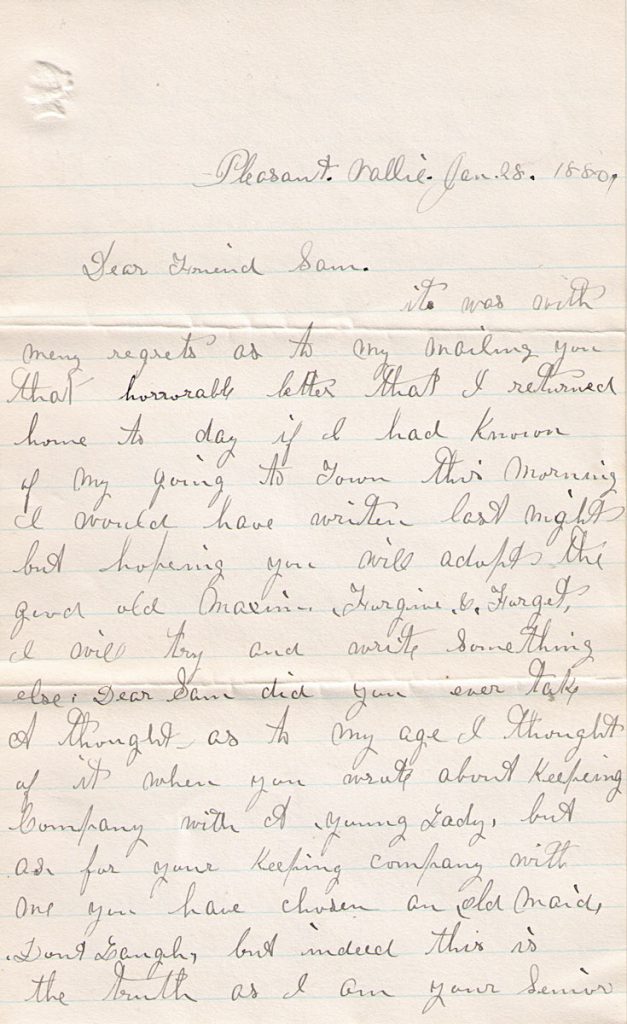 Pleasant. Vallie. Jan. 28. 1880,
Dear Friend Sam.
it was with
meny regrets as to my mailing you
that horrorable letter that I returned
home to day if I had Known
of my going to Town this Morning
I would have written last night
but hopeing you will adopt the
good old Maxim. Forgive, &, Forget,
I will try and write something
else; Dear Sam did you ever take
A thought as to my age I thought
of it when you wrote about Keepeing
Company with A young Lady, but
as for your Keeping company with
me you have chosen an old Maid,
Dont Laugh, but indeed this is
the truth as I am your Senior